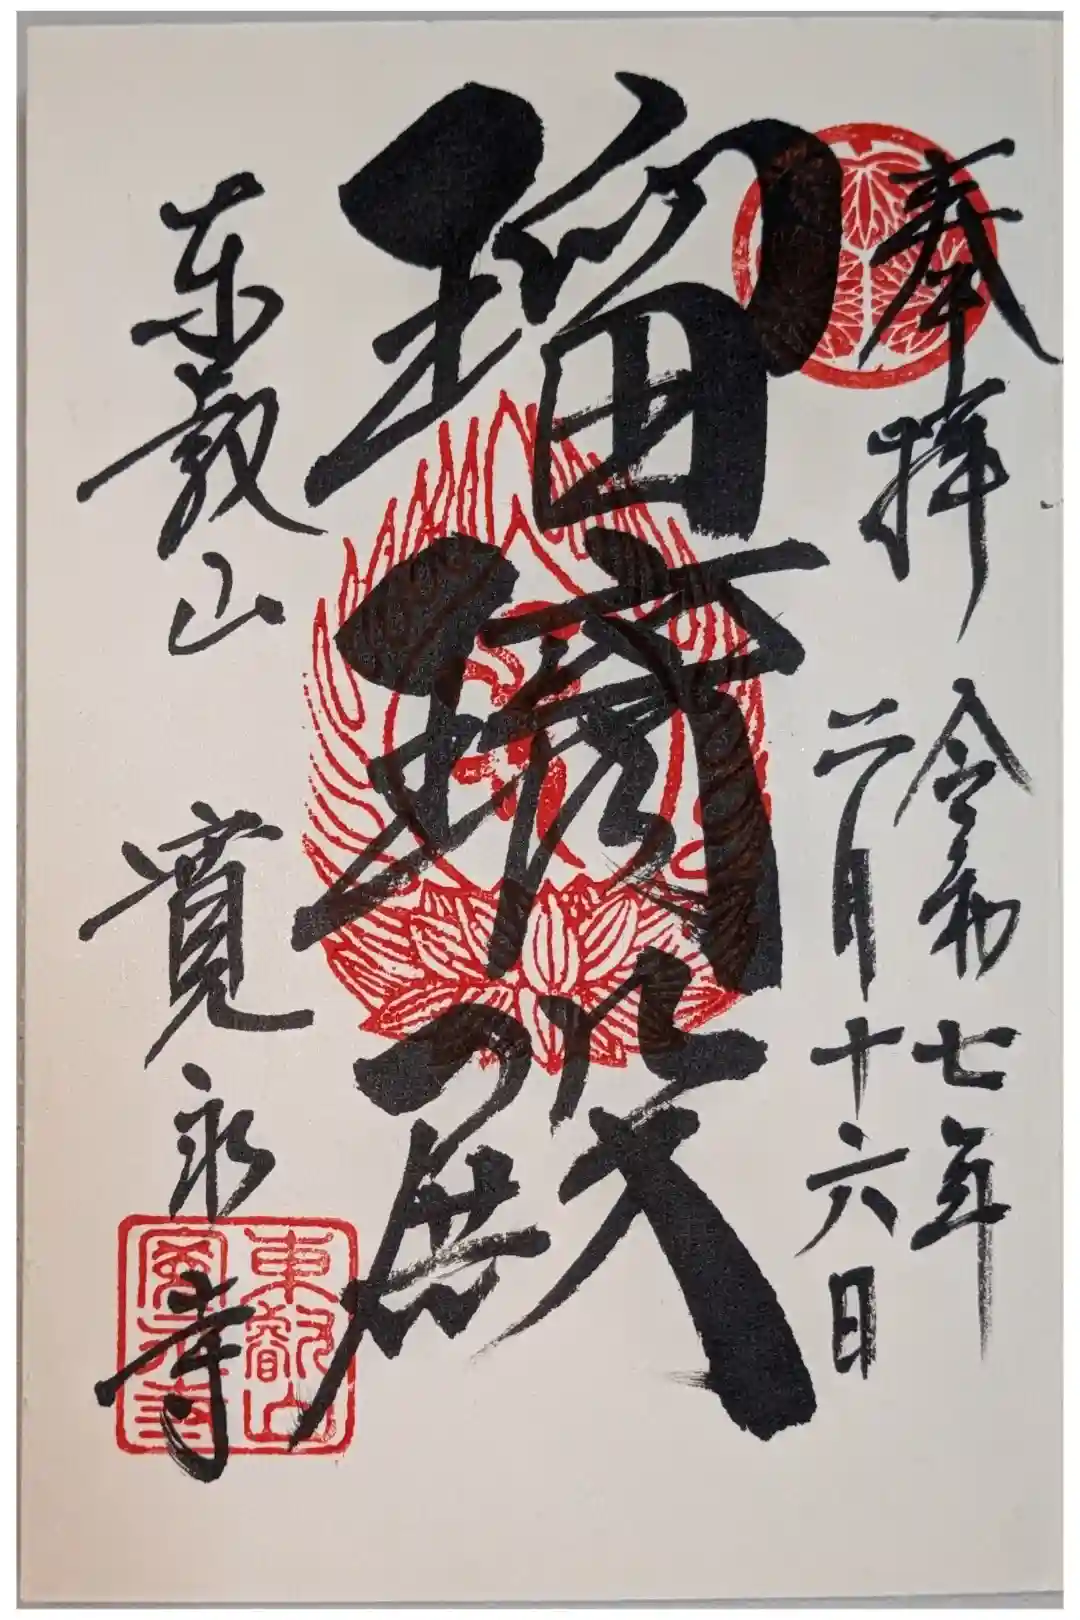 奉拝
令和七年
二月十六日
瑠璃殿
東叡山 寛永寺
東叡山
寛永寺